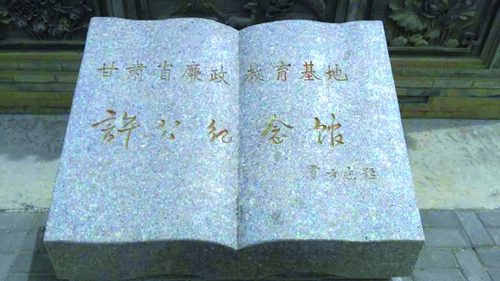 甘肅省廉政教育基地
許公紀念馆